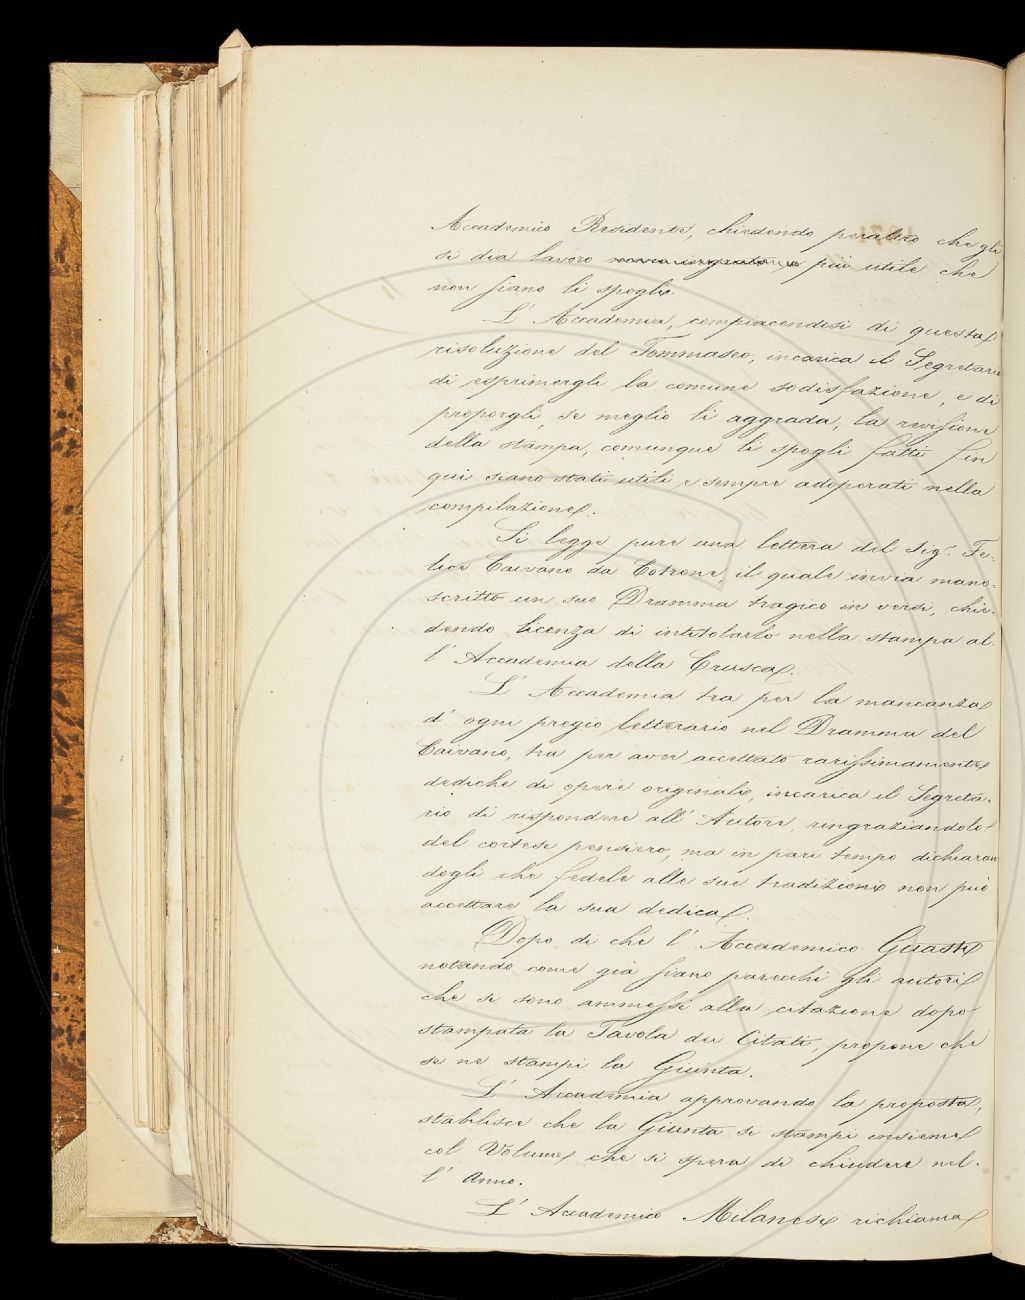 Accademico Residente, chiedendo peraltro che gli
si dia lavoro più utile che
non siano li spogli.
L' Accademia, compiacendosi di questa
risoluzione del Tommaseo, incarica il Segretario
di esprimergli la comune sodisfazione, e di
proporgli, se meglio li aggrada, la revisione
della stampa, comunque li spogli fatti fin
qui siano stati utili e sempre adoperati nella
compilazione.
Si legge pure una lettera del Sig.r Fe-
lice Caivano da Cotrone, il quale invia mano-
scritto un suo Dramma tragico in versi, chie-
dendo licenza di intitolarlo nella stampa al-
l' Accademia della Crusca.
L' Accademia tra per la mancanza
d' ogni pregio letterario nel Dramma del
Caivano, tra per aver accettato rarissimamente
dediche di opere originali, incarica il Segreta-
rio di rispondere all' Autore, ringraziandolo
del cortese pensiero, ma in pari tempo dichiaran
dogli che fedele alle sue tradizioni non può
accettare la sua dedica.
Dopo di che l' Accademico Guasti
notando come già siano parecchi gli autori
che si sono ammessi alla citazione dopo
stampata la Tavola dei Citati, propone che
se ne stampi la Giunta.
L' Accademia approvando la proposta,
stabilisce che la Giunta si stampi insieme
col Volume che si spera di chiudere nel-
l' anno.
L' Accademico Milanesi richiama